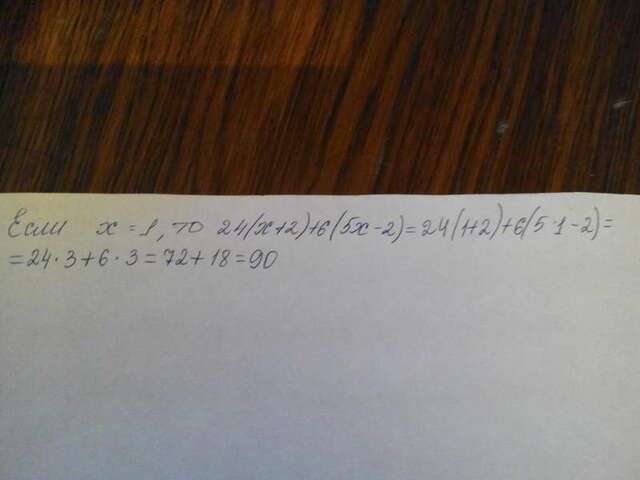 Если x = 1, то 24(x+2)+6(5x-2)=24(1+2)+6(5·1-2)=
=24·3+6·3=72+18=90